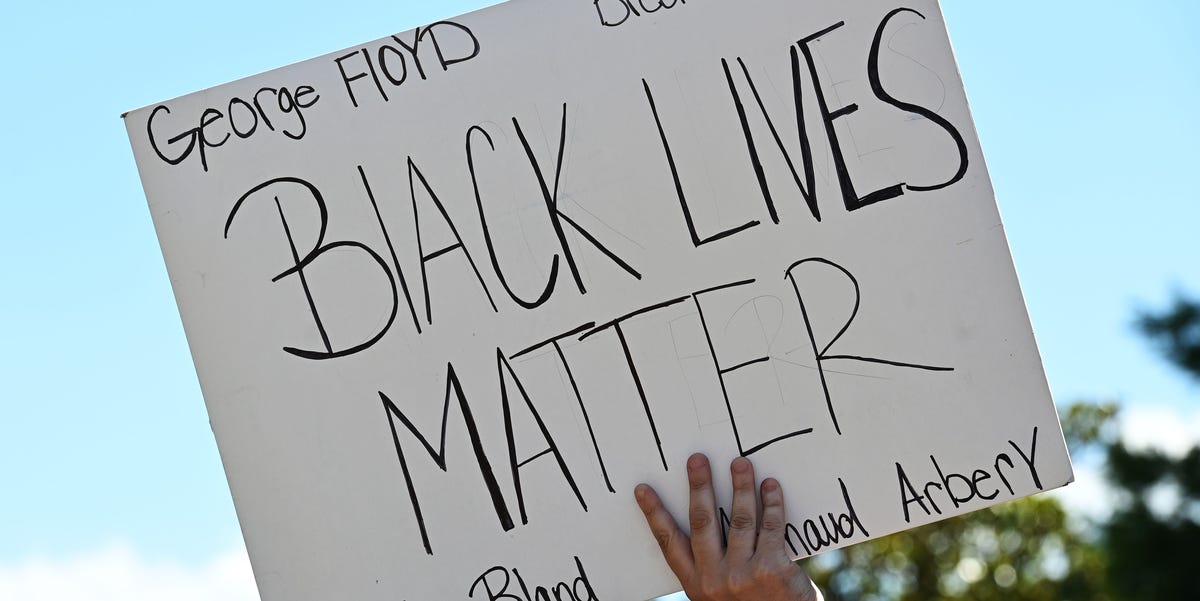 George FLOYD
BLACK LIVES
MATTER
Arbery
Bland